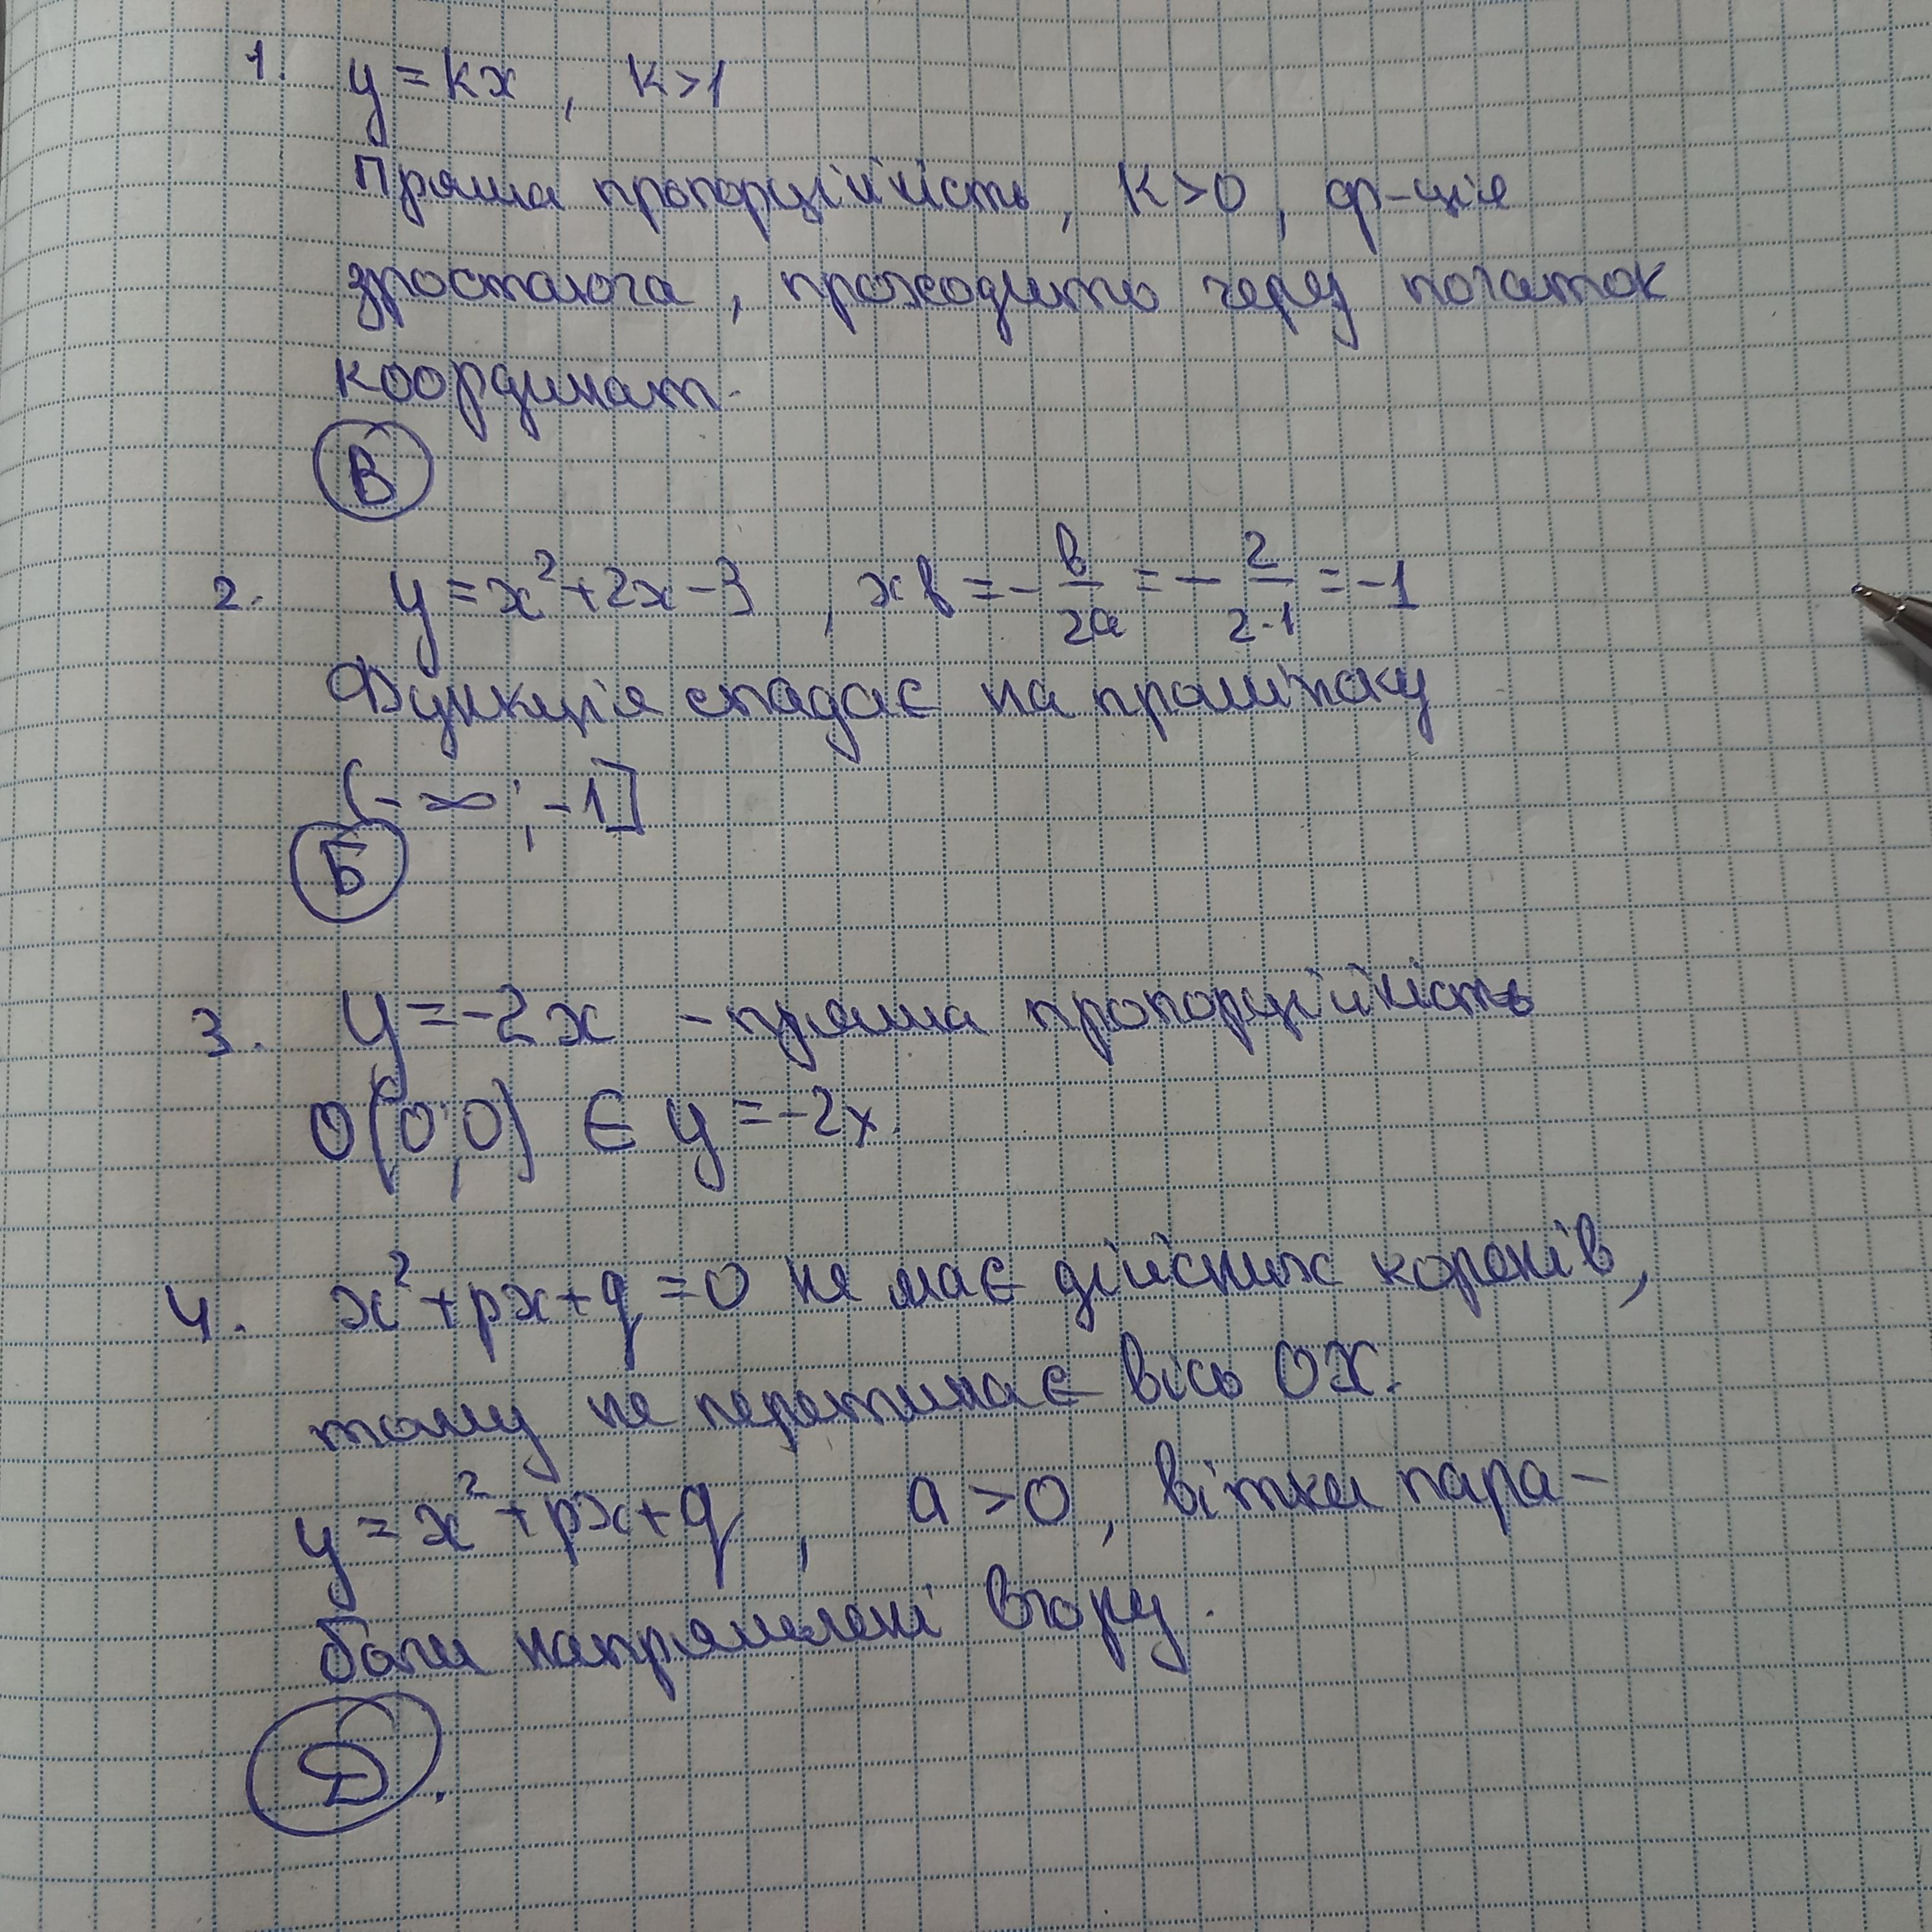 1. y = kx , k>1
Пряма пропорційність, k>0, ф-ція
зростаюча, проходить через початок
координат.
В
2. y = x²+2x-3 , xв = -в/2а = -2/2·1 = -1
Функція спадає на проміжку
(-∞; -1]
Б
3. y = -2x - пряма пропорційність
O(0;0) ∈ y = -2x.
4. x²+px+q = 0 не має дійсних коренів,
тому не перетинає вісь OX.
y = x²+px+q , a > 0, вітки пара-
боли напрямлені вгору.
Д.